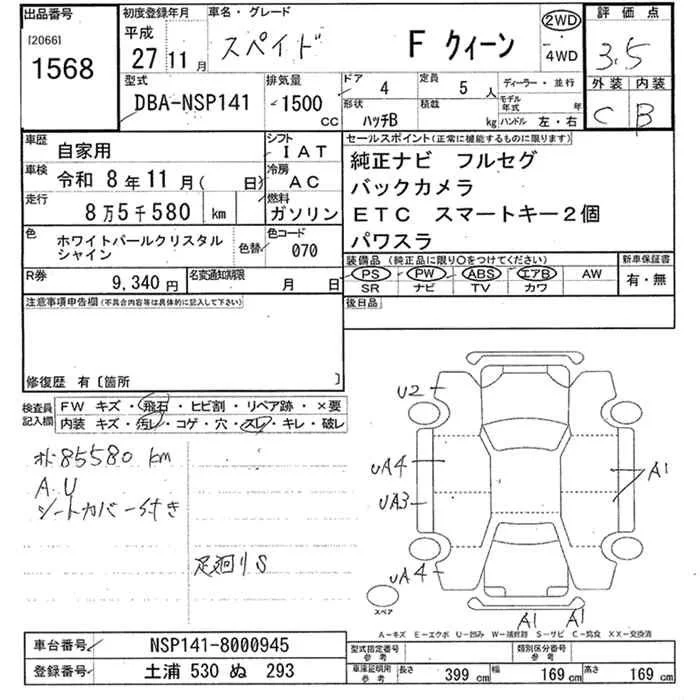 出品番号
[2066]
1568
初度登録年月
平成
27 11月
車名・グレード
スペイド F クィーン
2WD
4WD
評価点
3.5
外装 内装
C B
型式
DBA-NSP141
排気量
1500
CC
ドア
4
定員
5 人
形状
ハッチB
積載
kg
ディーラー・並行
モデル年式 年
ハンドル 左・右
車歴
自家用
車検
令和 8年11月( 日)
走行
8万5千580 km
シフト
IAT
冷房
AC
燃料
ガソリン
色
ホワイトパールクリスタル
シャイン
色替
色コード
070
R券
9,340 円
名変通知期限
月 日
セールスポイント(正常に機能するものに限ります)
純正ナビ フルセグ
バックカメラ
ETC スマートキー2個
パワスラ
装備品 (純正品に限り○をつけてください)
PS PW ABS エアB AW
SR ナビ TV カワ
新車保証書
有・無
後日品
注意事項申告欄(不具合内容等は具体的に記入して下さい)
修復歴 有〔箇所 〕
検査員
記入欄
FW キズ・飛石・ヒビ割・リペア跡・×要
内装 キズ・汚レ・コゲ・穴・スレ・キレ・破レ
オド 85580 km
A.U
シートカバー付き
足廻りS
U2
UA4
UA3
UA4
A1
A1
A1
スペア
A-キズ E-エクボ U-凹み W-補修跡 S-サビ C-腐食 XX-交換済
車台番号
NSP141-8000945
登録番号
土浦 530 ぬ 293
型式指定番号
参考
類別区分番号
参考
車庫証明用
参考
長さ 399 cm
幅 169 cm
高さ 169 cm